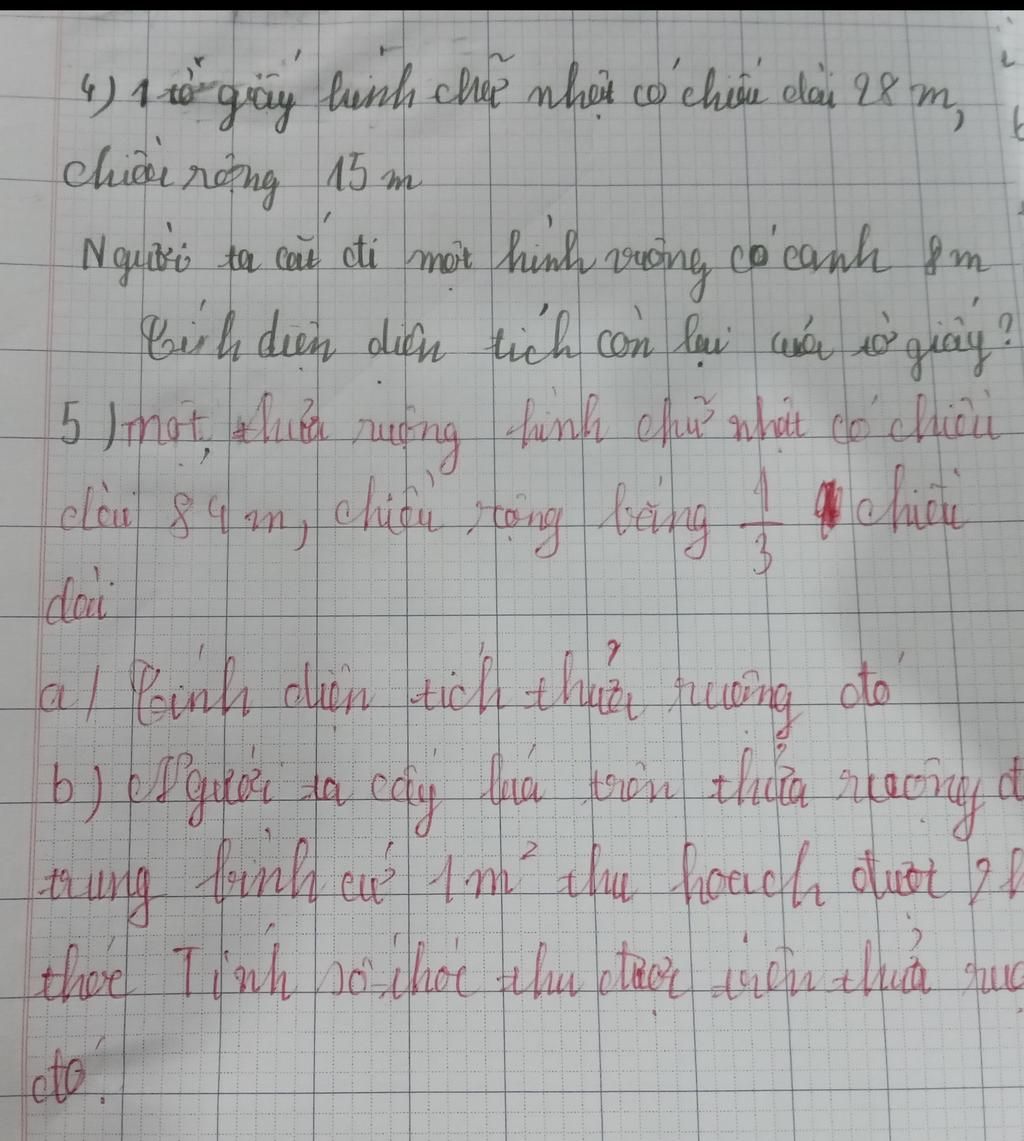 4) 1 tờ giấy hình chữ nhật có chiều dài 28 m,
chiều rộng 15 m
Người ta cắt đi một hình vuông có cạnh 8m
Tính diện diện tích còn lại của tờ giấy?
5) một thửa ruộng hình chữ nhật có chiều
dài 84 m, chiều rộng bằng 1/3 chiều
dài
a) Tính diện tích thửa ruộng đó
b) Người ta cấy lúa trên thửa ruộng đ
trung bình cứ 1m² thu hoạch được
thóc Tính số thóc thu được trên thửa ruộ
đó.